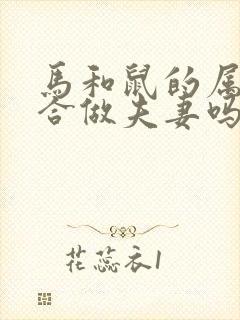 馬和鼠的属
合做夫妻吗
花蕊衣1